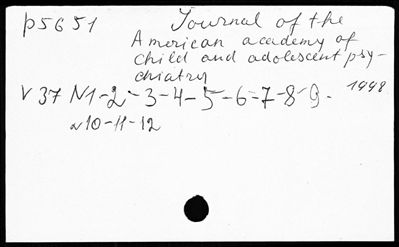 p5651 Journal of the
American academy of
child and adolescent psy-
chiatry
V 37 N1-2-3-4-5-6-7-8-9- 1998
N10-11-12